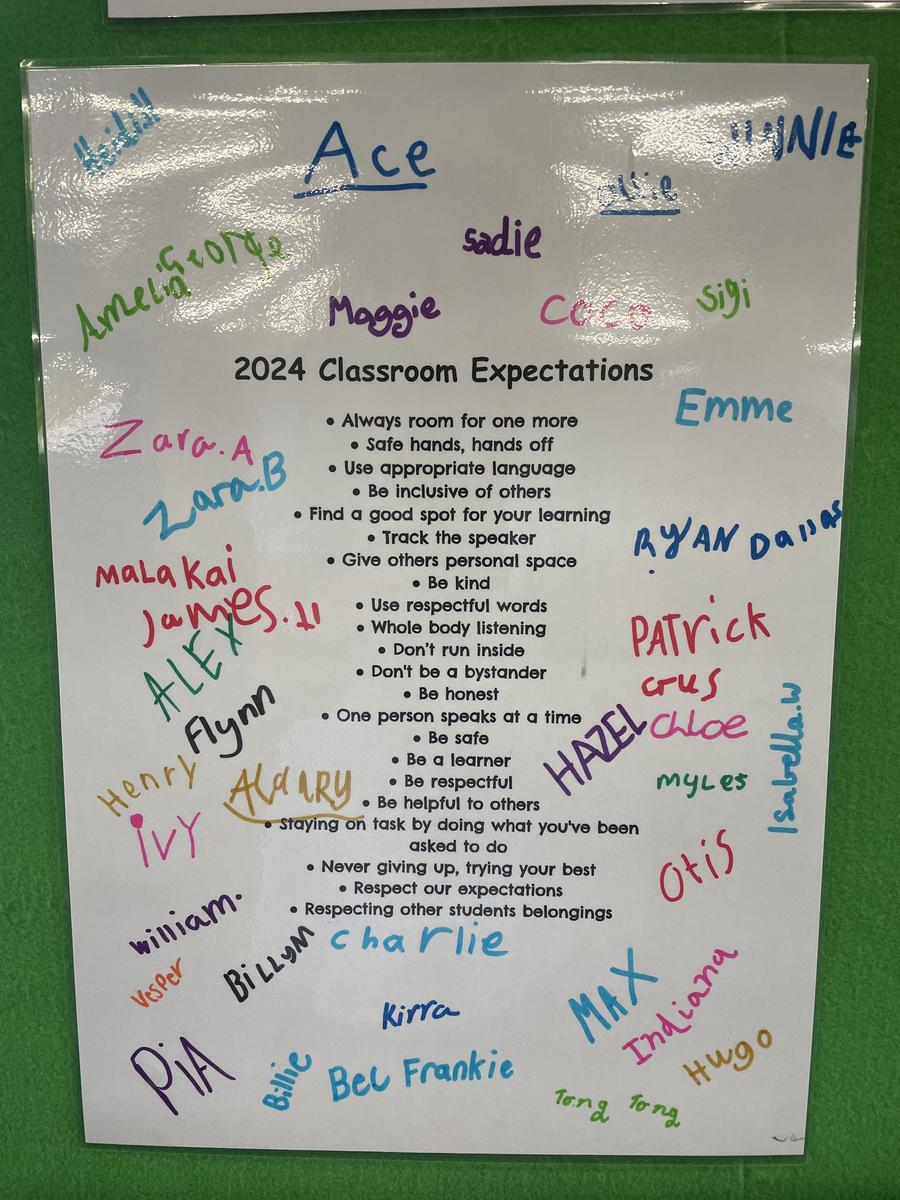 Ace
Ollie
Sadie
George
Amelia
Maggie
Coco
Sigi
2024 Classroom Expectations
Emme
• Always room for one more
Zara.A
• Safe hands, hands off
• Use appropriate language
Zara.B
• Be inclusive of others
• Find a good spot for your learning
RYAN Dallas
• Track the speaker
• Give others personal space
Malakai
• Be kind
James.H
• Use respectful words
• Whole body listening
PATrick
ALEX
• Don't run inside
• Don't be a bystander
crus
• Be honest
Flynn
• One person speaks at a time
Chloe
HAZEL
• Be safe
Isabella.w
• Be a learner
Henry
• Be respectful
myles
• Be helpful to others
ivy
• Staying on task by doing what you've been
asked to do
• Never giving up, trying your best
Otis
• Respect our expectations
• Respecting other students belongings
william.
Charlie
BiLLyM
Vesper
MAX
Indiana
Kirra
Hugo
PiA
Billie
Bel Frankie
Tong Tong